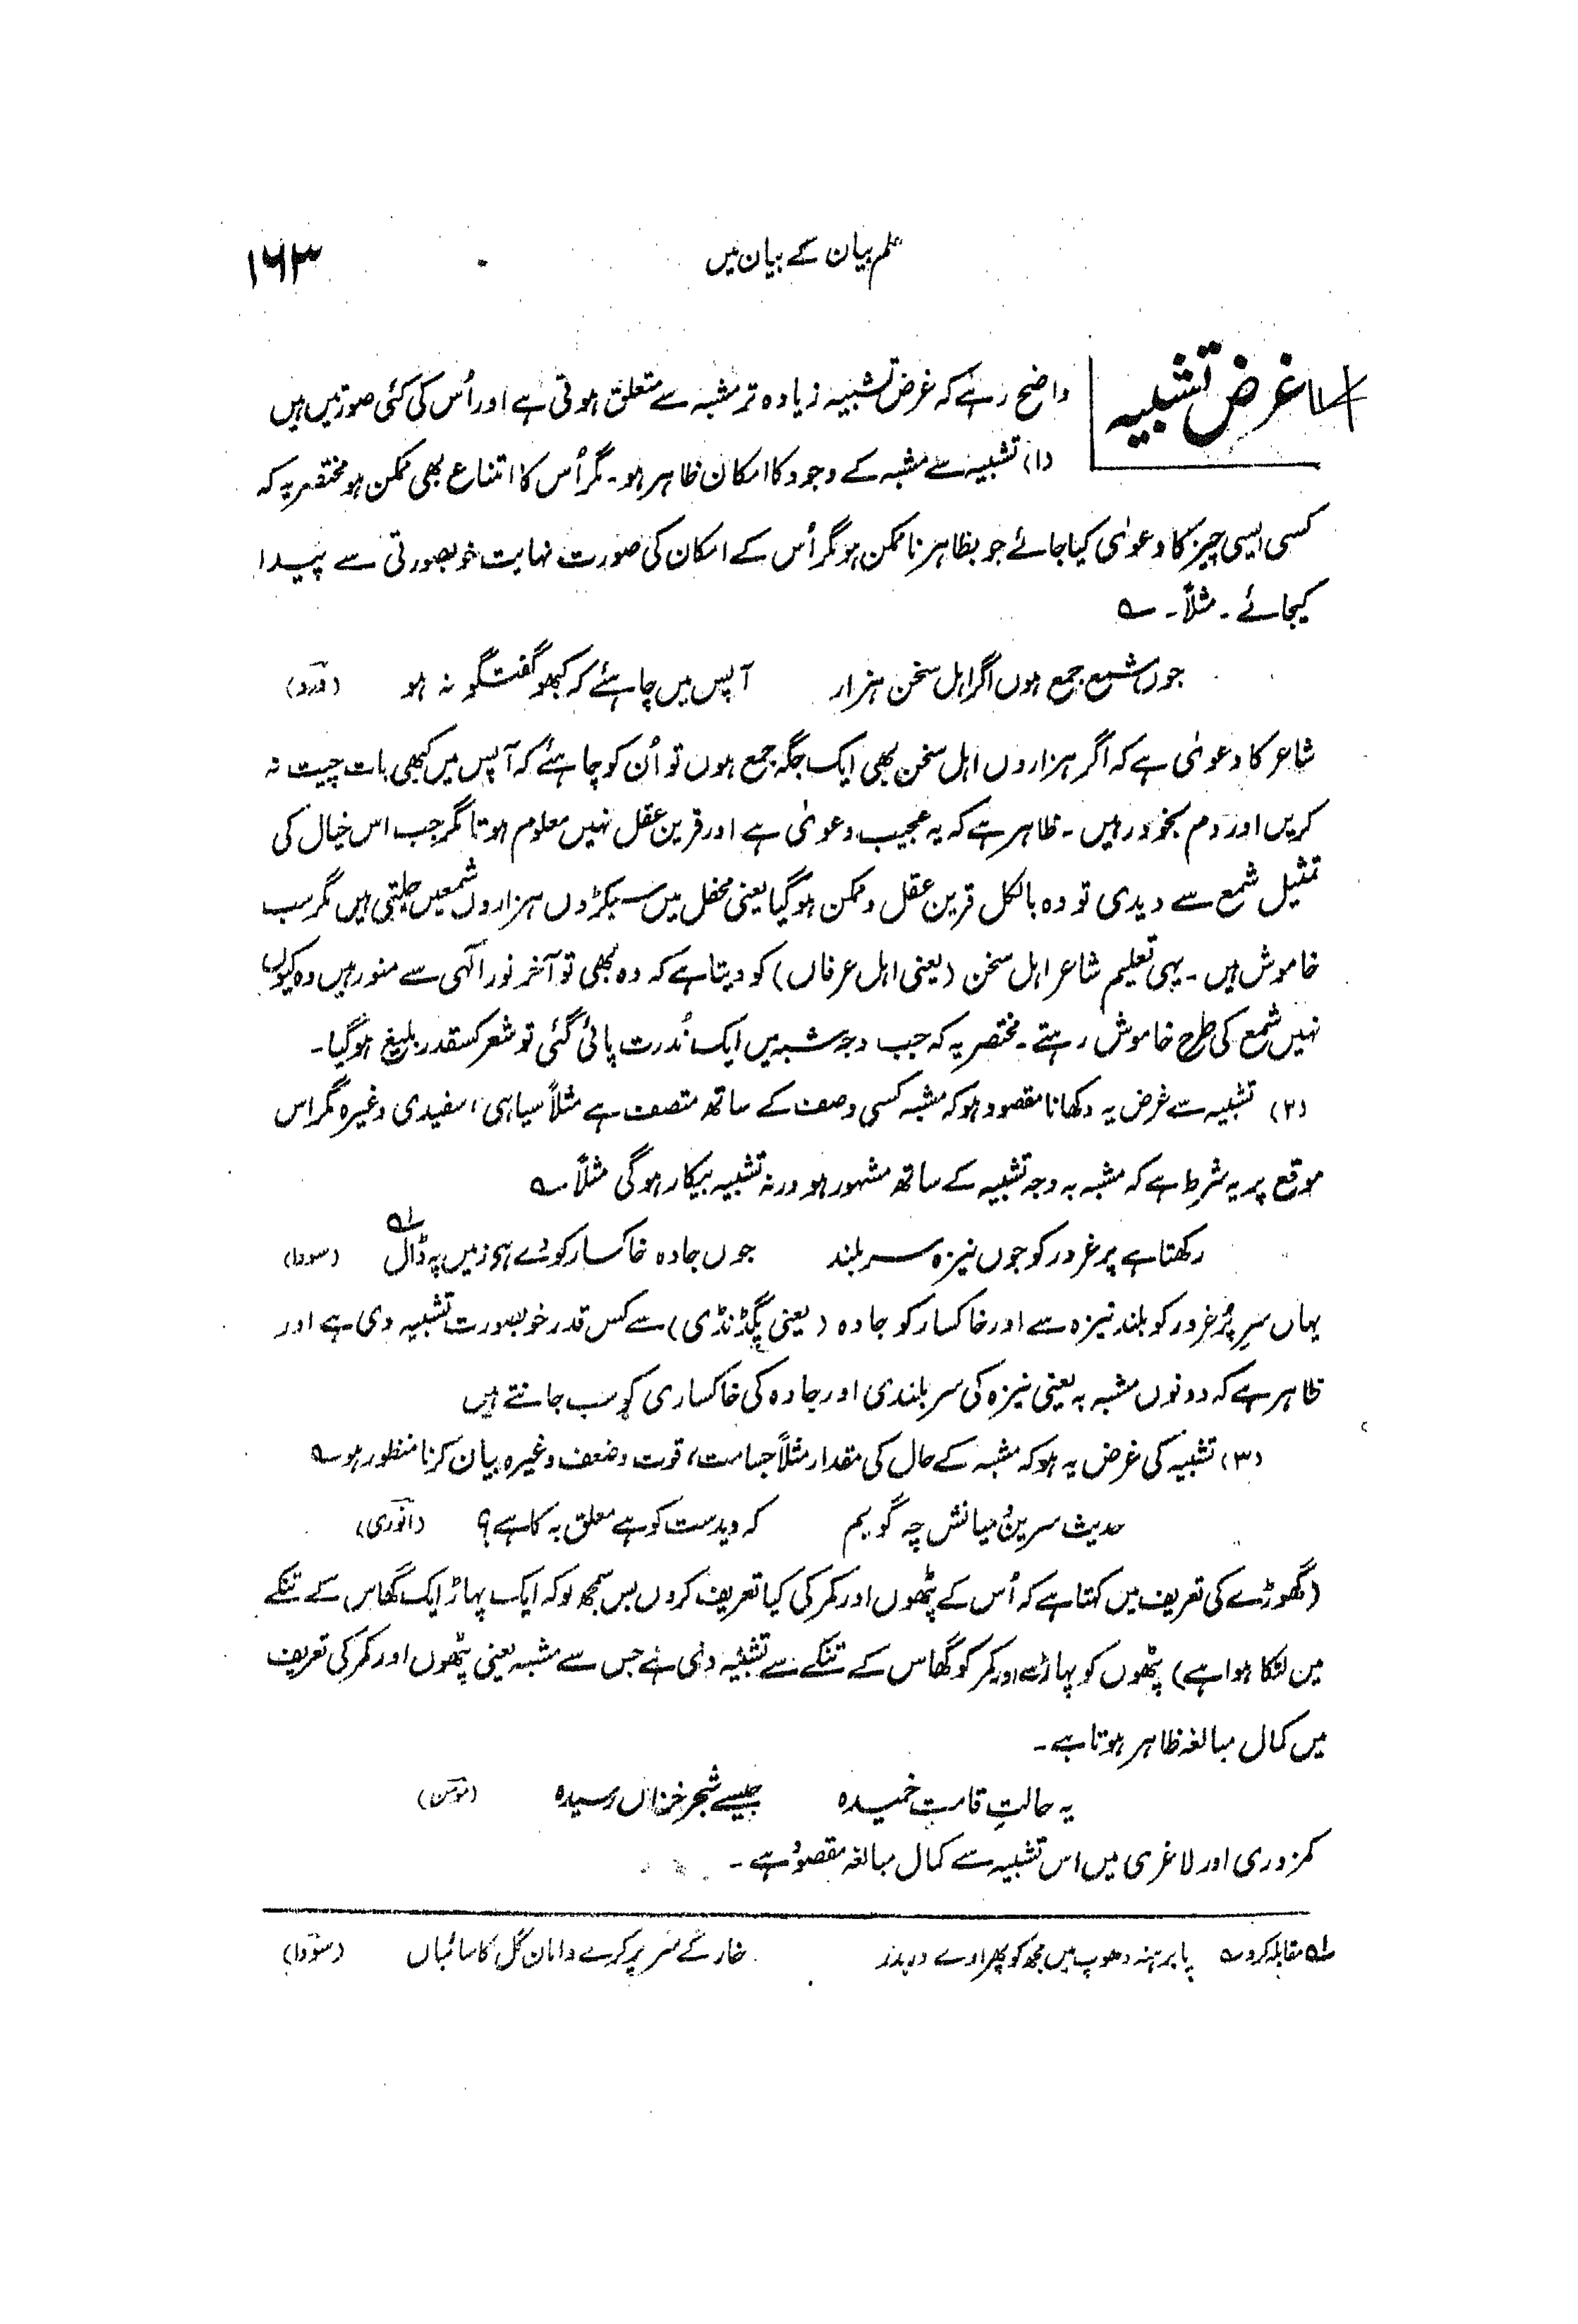 علم بیان کے بیان میں
۱۶۳
غرض تشبیہ
واضح رہے کہ غرض تشبیہ زیادہ تر مشبہ سے متعلق ہوتی ہے اور اُس کی کئی صورتیں ہیں
(۱) تشبیہ سے مشبہ کے وجود کا امکان ظاہر ہو۔ مگر اُس کا امتناع بھی ممکن ہو مختصر یہ کہ
کسی ایسی چیز کا دعویٰ کیا جائے جو بظاہر ناممکن ہو مگر اُس کے امکان کی صورت نہایت خوبصورتی سے پیدا
کیجائے۔ مثلاً۔ ؎
جوں شمع جمع ہوں اگر اہل سخن ہزار آپس میں چاہئے کہ کبھو گفتگو نہ ہو (درد)
شاعر کا دعویٰ ہے کہ اگر ہزاروں اہل سخن بھی ایک جگہ جمع ہوں تو اُن کو چاہئے کہ آپس میں کبھی بات چیت نہ
کریں اور دم بخود رہیں۔ ظاہر ہے کہ یہ عجیب دعویٰ ہے اور قرین عقل نہیں معلوم ہوتا مگر جب اس خیال کی
تمثیل شمع سے دیدی تو وہ بالکل قرین عقل و ممکن ہوگیا یعنی محفل میں سیکڑوں ہزاروں شمعیں جلتی ہیں مگر سب
خاموش ہیں۔ یہی تعلیم شاعر اہل سخن (یعنی اہل عرفاں) کو دیتا ہے کہ وہ بھی تو آخر نور الٰہی سے منور ہیں وہ کیوں
نہیں شمع کی طرح خاموش رہتے۔ مختصر یہ کہ جب وجہ شبہ میں ایک نُدرت پائی گئی تو شعر کسقدر بلیغ ہوگیا۔
(۲) تشبیہ سے غرض یہ دکھانا مقصود ہو کہ مشبہ کسی وصف کے ساتھ متصف ہے مثلاً سیاہی، سفیدی وغیرہ مگر اس
موقع پر یہ شرط ہے کہ مشبہ بہ وجہ تشبیہ کے ساتھ مشہور ہو ورنہ تشبیہ بیکار ہوگی مثلاً ؎
رکھتا ہے پر غرور کو جوں نیزہ سر بلند جوں جادہ خاکسار کو دے ہے زمیں پہ ڈال ؎۱ (سودا)
یہاں سرِ پُر غرور کو بلند نیزہ سے اور خاکسار کو جادہ (یعنی پگڈنڈی) سے کس قدر خوبصورت تشبیہ دی ہے اور
ظاہر ہے کہ دونوں مشبہ بہ یعنی نیزہ کی سربلندی اور جادہ کی خاکساری کو سب جانتے ہیں
(۳) تشبیہ کی غرض یہ ہو کہ مشبہ کے حال کی مقدار مثلاً جسامت، قوت و ضعف وغیرہ بیان کرنا منظور ہو ؎
حدیث سرین و میانش چہ گویم کہ دیدست کوہے معلق بہ کاہے؟ (انوری)
(گھوڑے کی تعریف میں کہتا ہے کہ اُس کے پٹھوں اور کمر کی کیا تعریف کروں بس سمجھ لو کہ ایک پہاڑ ایک گھاس کے تنکے
میں لٹکا ہوا ہے) پٹھوں کو پہاڑ سے اور کمر کو گھاس کے تنکے سے تشبیہ دی ہے جس سے مشبہ یعنی پٹھوں اور کمر کی تعریف
میں کمال مبالغہ ظاہر ہوتا ہے۔
یہ حالتِ قامتِ خمیدہ جیسے شجر خزاں رسیدہ (مومن)
کمزوری اور لاغری میں اس تشبیہ سے کمال مبالغہ مقصود ہے۔
؎۱ مقابلہ کرو ؎ پا برہنہ دھوپ میں مجھ کو پھراوے در بدر خار کے سر پر کرے دامان گل کا سائباں (سودا)